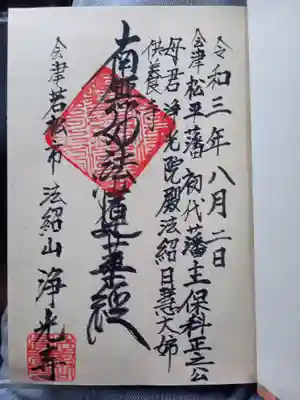 令和三年八月二日
会津松平藩初代藩主保科正之公
母君浄光院殿法紹日慧大姉
供養寺
南無妙法蓮華經
会津若松市法紹山浄光寺